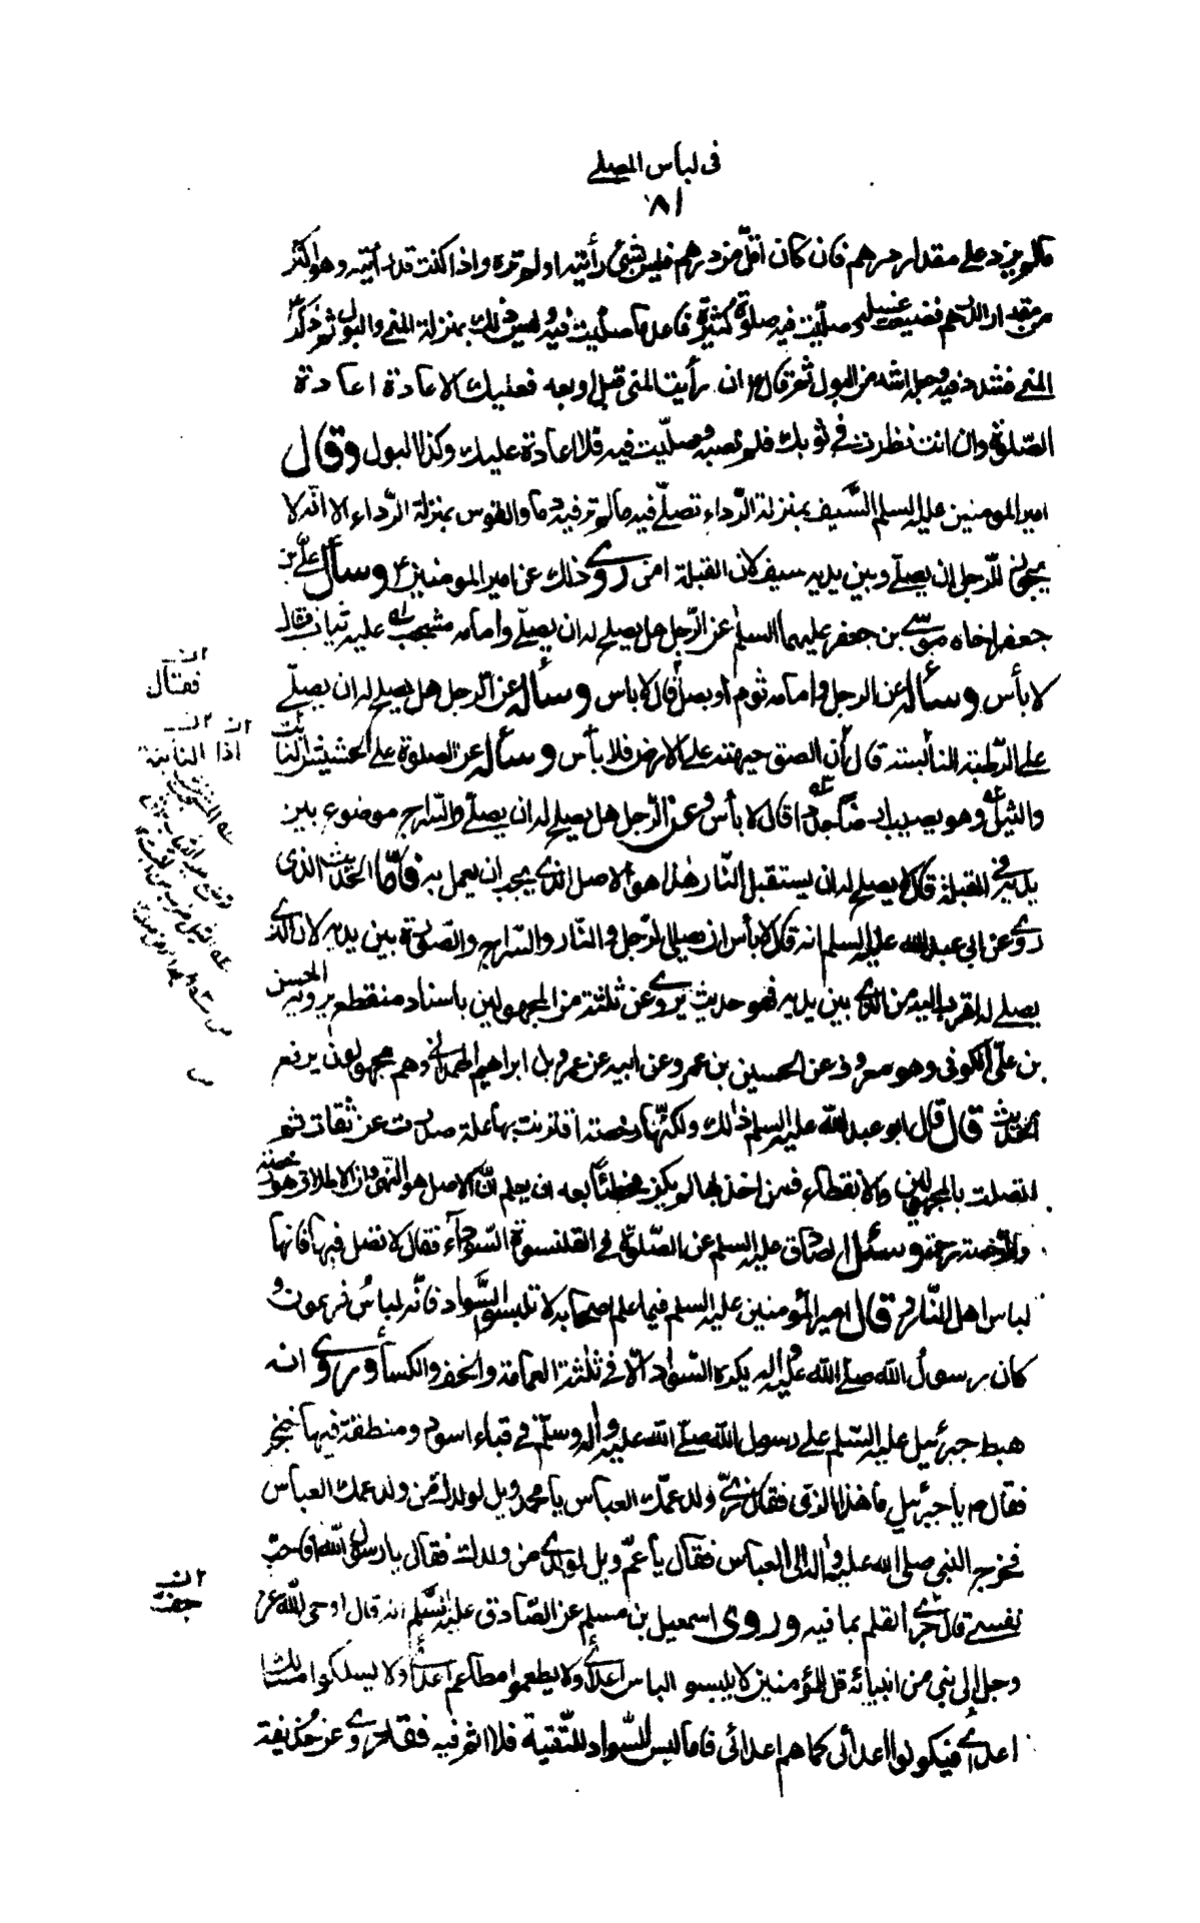 فى لباس المصلے
٨١
مالم يزد على مقدار درهم فان كان اقل من درهم فليس بشئ رأيته او لم تره واذا كنت قد رأيته وهو اكثر
من مقدار الدرهم فضيعت غسله وصليت فيه صلوة كثيرة فاعد ما صليت فيه وليس ذلك بمنزلة المنى والبول ثم ذكر ع
المنى فشدد فيه وجعله اشد من البول ثم قال ع ان رأيت المنى قبل او بعد فعليك الاعادة اعادة
الصلوة وان انت نظرت فى ثوبك فلم تصبه وصليت فيه فلا اعادة عليك وكذا البول وقال
امير المومنين عليه السلم السّيف بمنزلة الرّداء تصلّے فيه مالم تر فيه دما والقوس بمنزلة الرّداء الا انّه لا
يجوز للرجل ان يصلّے وبين يديه سيف لان القبلة امن روى ذلك عن امير المومنين ع وسأل علىّ بن
جعفر اخاه موسى بن جعفر عليهما السلم عن الرّجل هل يصلح له ان يصلّے وامامه مشجب عليه ثياب فقال
لا بأس وسأله عن الرجل وامامه ثوم او بصل قال لا باس وسأله عن الرجل هل يصلح له ان يصلّے
على الرّطبة النابتة قال ان الصق جبهته على الارض فلا بأس وسأله عن الصلوة على الحشيش النابت
والثيل وهو يصيب ارضا جددا قال لا بأس وعن الرّجل هل يصلح له ان يصلّے والسّراج موضوع بين
يديه فى القبلة قال لا يصلح له ان يستقبل النّار هذا هو الاصل الذى يجب ان يعمل به فأمّا الحديث الذى
روى عن ابى عبد الله عليه السلم انه قال لا بأس ان يصلى الرّجل والنّار والسّراج والصّورة بين يديه لان الذى
يصلے له اقرب اليه من الذى بين يديه فهو حديث يروى عن ثلثة من المجهولين باسناد منقطع يرويه الحسن
بن علىّ الكوفى وهو معروف عن الحسين بن عمرو عن ابيه عن عمرو بن ابراهيم الهمدانى وهم مجهولون يرفع
الحديث قال قال ابو عبد الله عليه السلم ذلك ولكنّها رخصة اقترنت بها علة صدرت عن ثقات ثم
اتصلت بالمجهولين والانقطاع فمن اخذ بها لم يكن مخطئا بعد ان يعلم انّ الاصل هو النّهى وان الاطلاق هو رخصة
والرّخصة رحمة وسئل الصادق عليه السلم عن الصّلوة فى القلنسوة السّوداء فقال لا تصل فيها فانّها
لباس اهل النّار وقال امير المؤمنين عليه السلم فيما علم اصحابه لا تلبسوا السّواد فانّه لباس فرعون و
كان رسول الله صلے الله عليه وآله يكره السّواد الّا فى ثلثة العمامة والخف والكسأ وروى انه
هبط جبرئيل عليه السّلم على رسول الله صلّے الله عليه وآله وسلّم فى قباء اسود ومنطقة فيها خنجر
فقال ص يا جبرئيل ما هذا الزى فقال زى ولد عمّك العباس يا محمد ويل لولدك من ولد عمك العباس
فخرج النبى صلى الله عليه وآله الى العباس فقال يا عمّ ويل لولدى من ولدك فقال يا رسول الله افاجبّ
نفسے قال جرى القلم بما فيه وروى اسمعيل بن مسلم عن الصّادق عليه السّلم انه قال اوحى الله عز
وجل الى نبى من انبيائه قل للمؤمنين لا يلبسوا لباس اعدائى ولا يطعموا مطاعم اعدائى ولا يسلكوا مسالك
اعدائى فيكونوا اعدائى كما هم اعدائى فاما لبس السّواد للتّقية فلا اثم فيه فقد روى عن حذيفة
فقال
اذا النابتة
جفّ